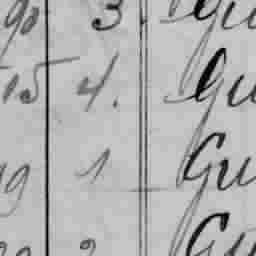 90 3. Gu
15 4. Gu
19 1 Gu
Gu